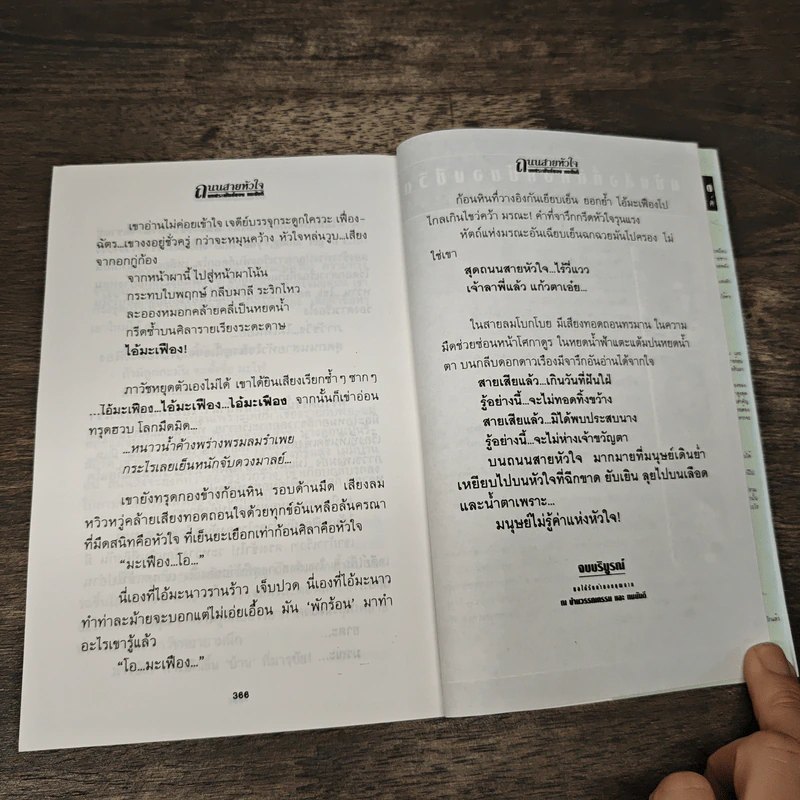 ถนนสายหัวใจ
เขาอ่านไม่ค่อยเข้าใจ เจดีย์บรรจุกระดูกใครวะ เฟื่อง-
ฉัตร...เขางงอยู่ชั่วครู่ กว่าจะหมุนคว้าง หัวใจหล่นวูบ...เสียง
จากอกกู่ก้อง
จากหน้าผานี้ ไปสู่หน้าผาโน้น
กระทบใบพฤกษ์ กลีบมาลี ระริกไหว
ละอองหมอกคล้ายคลี่เป็นหยดน้ำ
กรีดซ้ำบนศิลารายเรียงระดะดาษ
ไอ้มะเฟือง!
ภาวัชหยุดตัวเองไม่ได้ เขาได้ยินเสียงเรียกซ้ำๆ ซากๆ
...ไอ้มะเฟือง...ไอ้มะเฟือง...ไอ้มะเฟือง จากนั้นก็เข่าอ่อน
ทรุดฮวบ โลกมืดมิด...
...หนาวน้ำค้างพร่างพรมลมรำเพย
กระไรเลยเย็นหนักจับดวงมาลย์...
เขายังทรุดกองข้างก้อนหิน รอบด้านมืด เสียงลม
หวิวหวู่คล้ายเสียงทอดถอนใจด้วยทุกข์อันเหลือล้นครณา
ที่มืดสนิทคือหัวใจ ที่เย็นยะเยือกเท่าก้อนศิลาคือหัวใจ
“มะเฟือง...โอ...”
นี่เองที่ไอ้มะนาวรานร้าว เจ็บปวด นี่เองที่ไอ้มะนาว
ทำท่าละม้ายจะบอกแต่ไม่เอ่ยเอื้อน มัน ‘พักร้อน’ มาทำ
อะไรเขารู้แล้ว
“โอ...มะเฟือง...”
366
ถนนสายหัวใจ
ก้อนหินที่วางอิงกันเยียบเย็น ยอกย้ำ ไอ้มะเฟืองไป
ไกลเกินไขว่คว้า มรณะ! คำที่จารึกกรีดหัวใจรุนแรง
หัตถ์แห่งมรณะอันเฉียบเย็นฉกฉวยมันไปครอง ไม่
ใช่เขา
สุดถนนสายหัวใจ...ไร้วี่แวว
เจ้าลาพี่แล้ว แก้วตาเอ๋ย...
ในสายลมโบกโบย มีเสียงทอดถอนทรมาน ในความ
มืดช่วยซ่อนหน้าโศกาดูร ในหยดน้ำฟ้าแตะแต้มปนหยดน้ำ
ตา บนกลีบดอกดาวเรืองมีจารึกอันอ่านได้จากใจ
สายเสียแล้ว...เกินวันที่ฝันใฝ่
รู้อย่างนี้...จะไม่ทอดทิ้งขว้าง
สายเสียแล้ว...มิได้พบประสบนาง
รู้อย่างนี้...จะไม่ห่างเจ้าขวัญตา
บนถนนสายหัวใจ มากมายที่มนุษย์เดินย่ำ
เหยียบไปบนหัวใจที่ฉีกขาด ยับเยิน ลุยไปบนเลือด
และน้ำตาเพราะ...
มนุษย์ไม่รู้ค่าแห่งหัวใจ!
จบบริบูรณ์
ณ บ้านวรรณกรรม และ